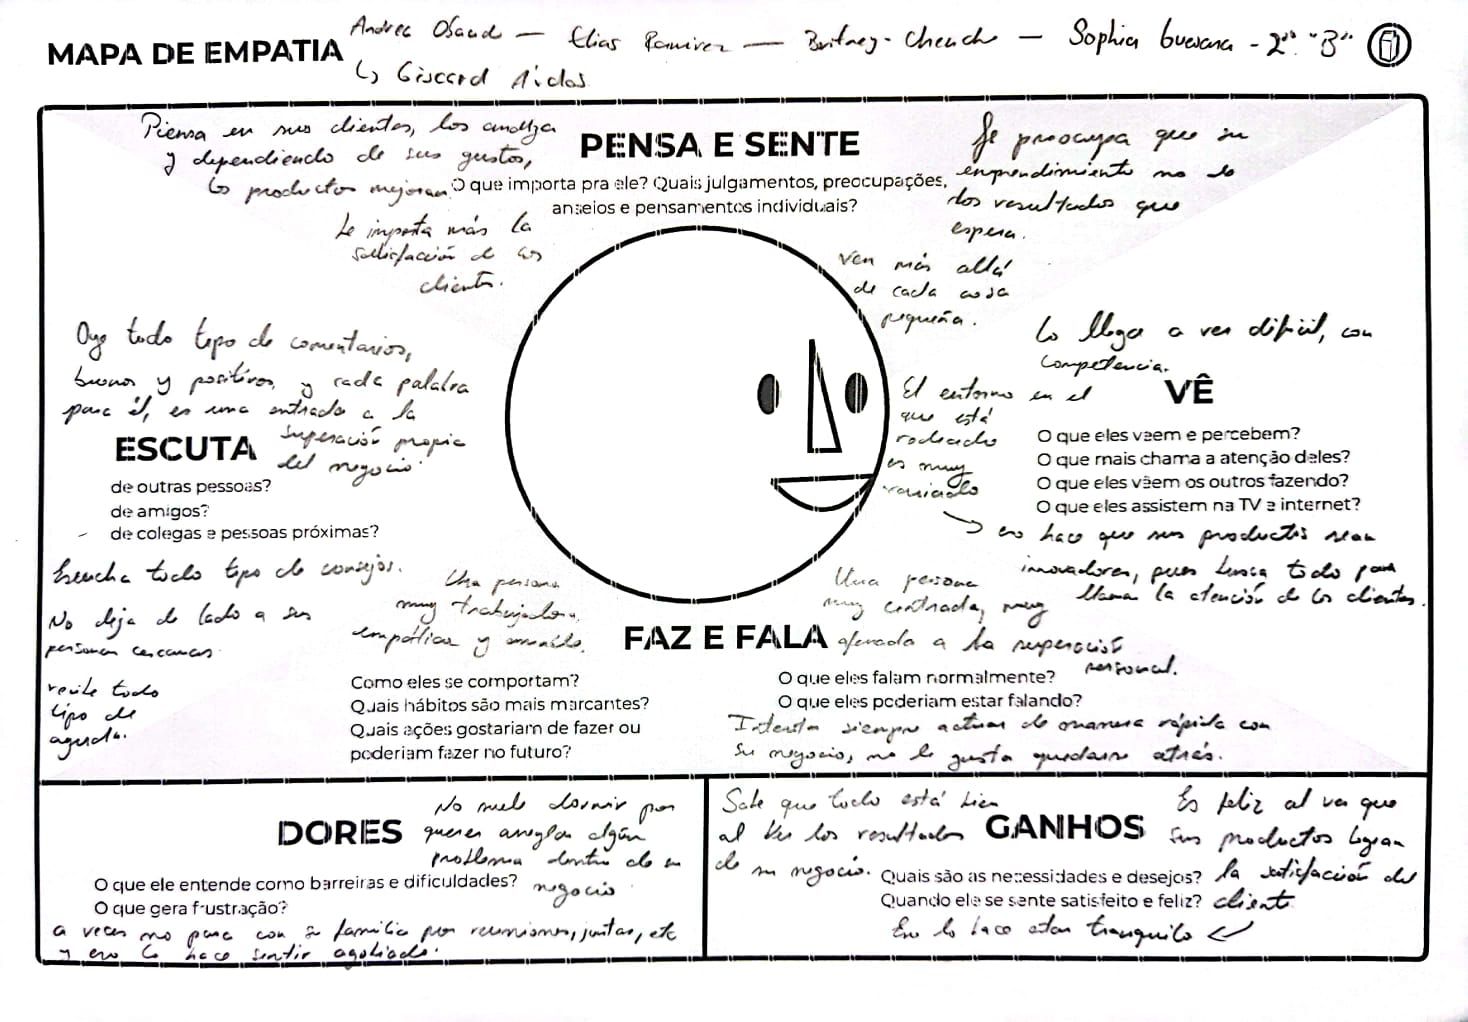 MAPA DE EMPATIA
Andrea — Elias Ramirez — Britney — Sophia Guevara - 2° "B"
↳ Giscard
PENSA E SENTE
O que importa pra ele? Quais julgamentos, preocupações,
anseios e pensamentos individuais?
Piensa en sus clientes, los analiza
y dependiendo de sus gustos,
los productos mejoran
Le importa más la
satisfacción de los
clientes.
Se preocupa que su
emprendimiento no le
dos resultados que
espera.
Ven más allá
de cada cosa
pequeña.
Lo llega a ver difícil, con
competencia.
VÊ
O que eles veem e percebem?
O que mais chama a atenção deles?
O que eles vêem os outros fazendo?
O que eles assistem na TV e internet?
El entorno en el
que está
rodeado
es muy
variado
→ eso hace que sus productos sean
innovadores, pues busca todo para
llamar la atención de los clientes.
Oye todo tipo de comentarios,
buenos y positivos, y cada palabra
para él, es una entrada a la
superación propia
del negocio.
ESCUTA
de outras pessoas?
de amigos?
de colegas e pessoas próximas?
Escucha todo tipo de consejos.
No deja de lado a sus
personas cercanas
recibe todo
tipo de
ayuda.
FAZ E FALA
Una persona
muy trabajadora,
empática y
Como eles se comportam?
Quais hábitos são mais marcantes?
Quais ações gostariam de fazer ou
poderiam fazer no futuro?
Una persona
muy centrada, muy
aferrada a la superación
personal.
O que eles falam normalmente?
O que eles poderiam estar falando?
Intenta siempre actuar de manera rápida con
su negocio, no le gusta quedarse atrás.
DORES
No suele dormir por
querer arreglar algún
problema dentro de su
negocio
O que ele entende como barreiras e dificuldades?
O que gera frustração?
a veces no pasa con su familia por reuniones, juntas, etc
y eso lo hace sentir agobiado.
GANHOS
Sabe que todo está bien
al ver los resultados
de su negocio.
Es feliz al ver que
sus productos logran
la satisfacción del
cliente
Quais são as necessidades e desejos?
Quando ele se sente satisfeito e feliz?
Eso lo hace estar tranquilo ↵